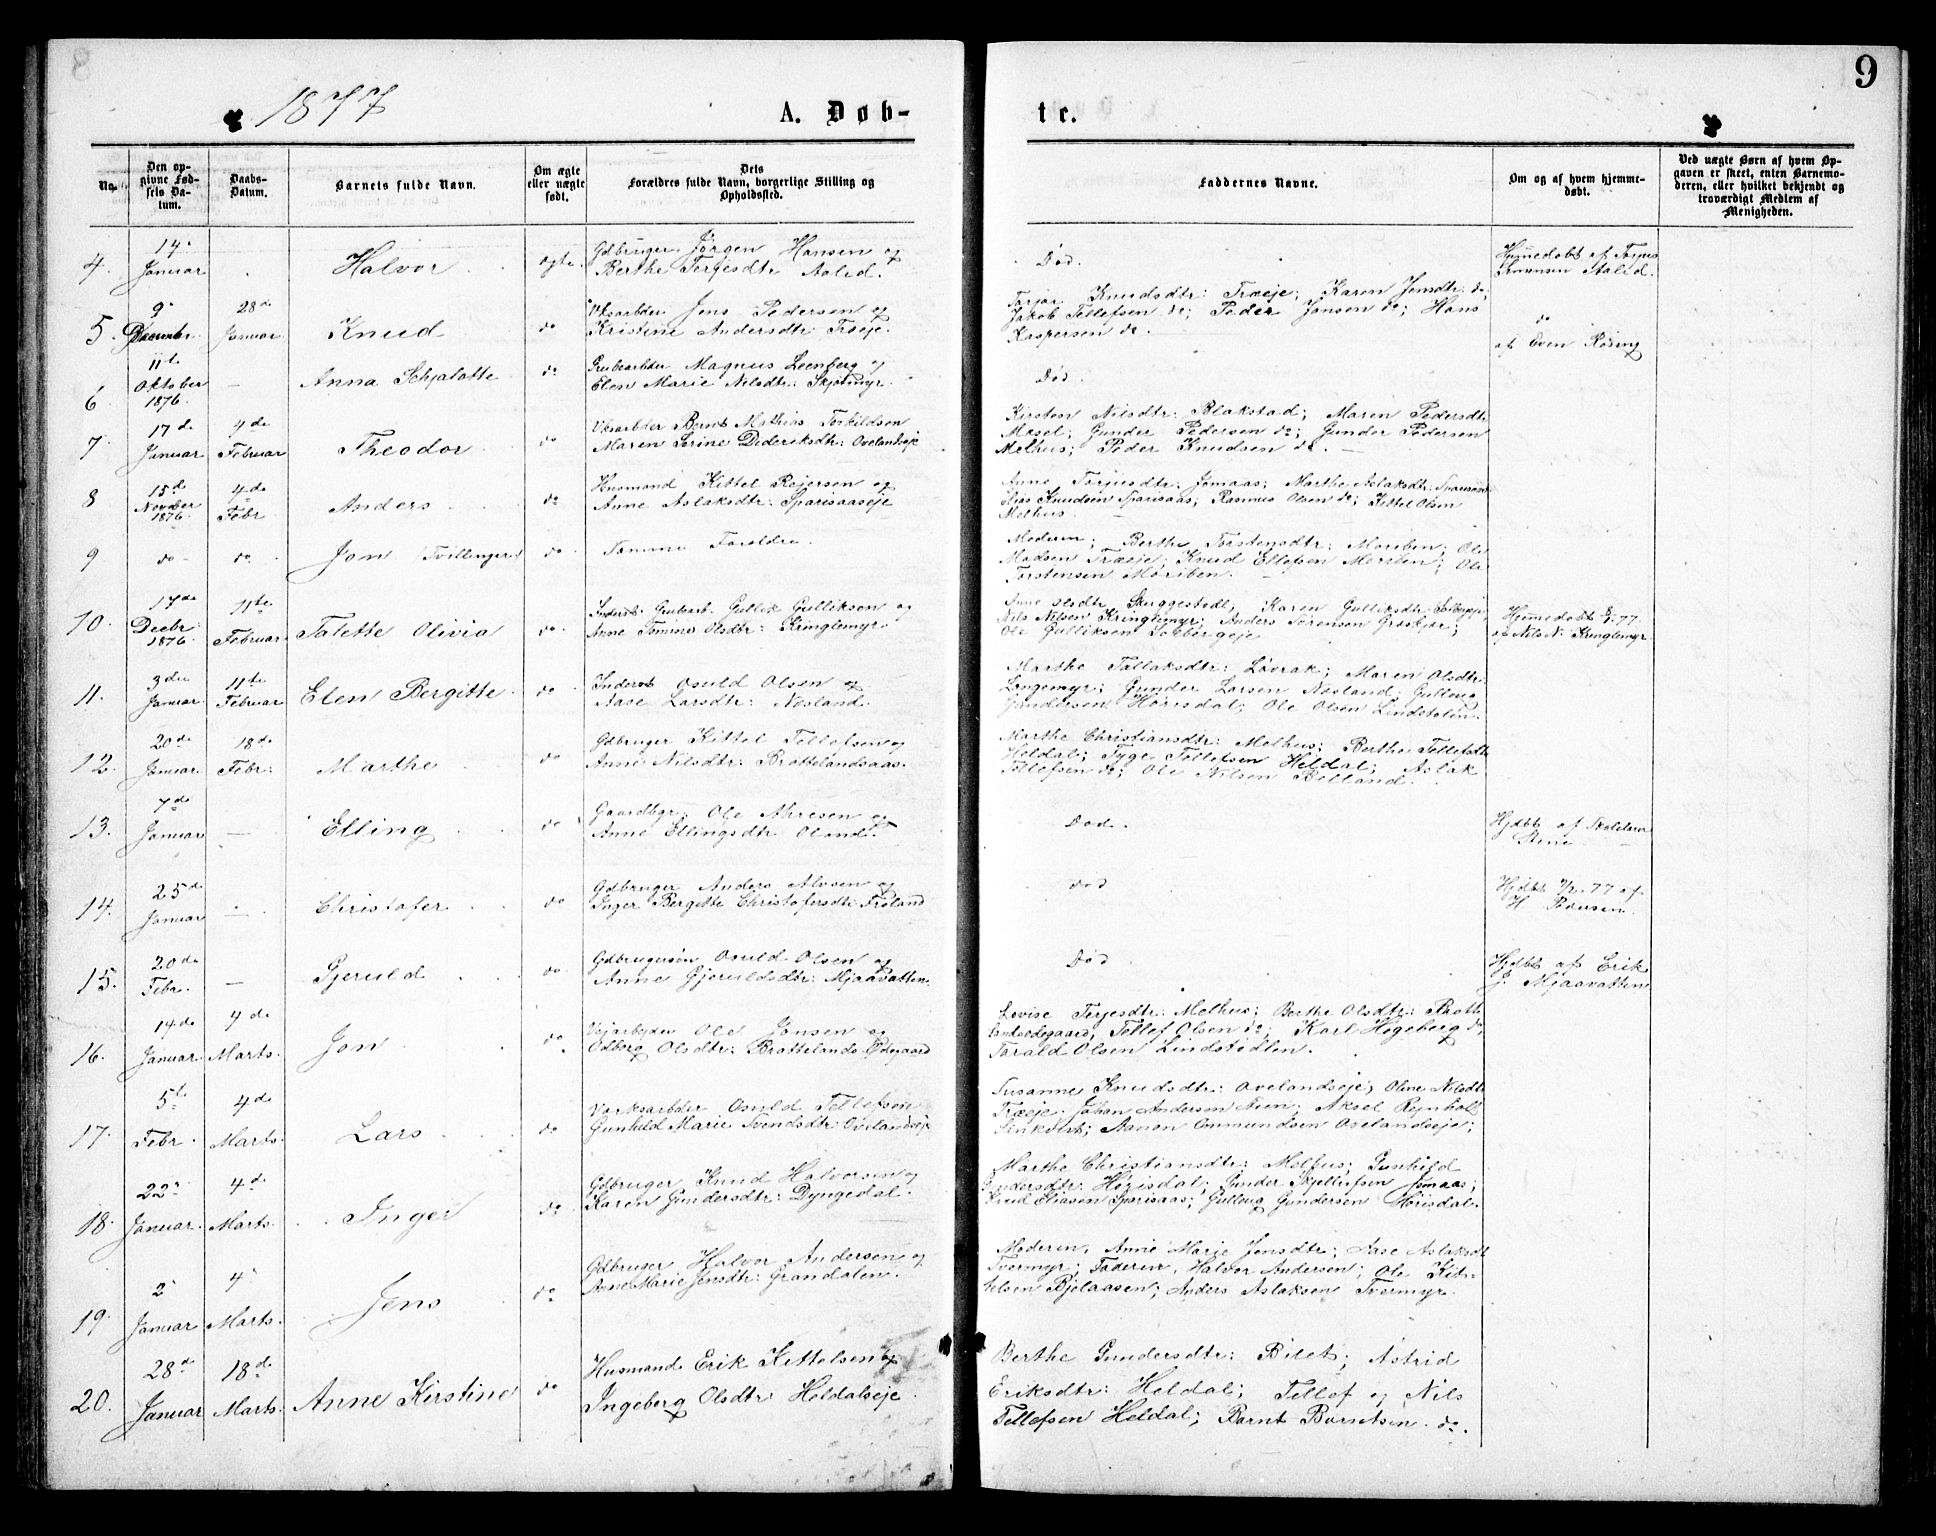 1877
A. Døb-
te.
9
No.
Den op-
givne Fød-
sels Da-
tum.
Daabs-
Datum.
Barnets fulde Navn.
Om ægte
eller uægte
født.
Dets
Forældres fulde Navn, borgerlige Stilling og
Opholdssted.
Faddernes Navne.
Om og af hvem hjemme-
døbt.
Ved uægte Børn af hvem Op-
gaven er skeet, enten Barnemo-
deren, eller hvilket bekjendt og
troværdigt Medlem af
Menigheden.
4.
14
Januar
Halvor
ægte
Gdbruger Jørgen Hansen og
Berthe Terjesdtr Aalid.
Død.
Hjemedøbt af Terjus
Aalid.
5.
9
December
28de
Januar
Knud
do
Jens Pedersen og
Kristine Andersdtr: Træeje.
Torjør Knudsdtr: Træeje; Karen Jensdtr. do;
Jakob Tellefsen do; Peder Jensen do; Hans
Kaspersen do.
do
af Even Røsing
6.
11te
Oktober
1876.
—
Anna Schjalotte
do
Grubearbder Magnus Leenberg og
Elen Marie Nilsdtr: Skjortmyr.
Død.
7.
17de
Januar
4de
Februar
Theodor
do
Vksarbder Bernt Mathias Torkildsen
Maren Serine Dideriksdtr: Ovelandseje
Kirsten Nilsdtr: Blakstad; Maren Pedersdtr
Messel; Gunder Pedersen do; Gunder Pedersen
Melhus; Peder Knudsen do. —
8
15de
November
1876
4de
Febr
Anders
do
Husmand Kittel Reiersen og
Anne Aslaksdtr: Sparisaaseje
Anne Torjusdtr: Jomaas; Marthe Aslaksdtr: Sparisaas
Elias Knudsen Sparisaas; Rasmus Olsen do; Kittel Olsen
Melhus.
9
do
do
Jon (Tvillinger)
do
Samme Foreldre.
Moderen; Berthe Torstensdtr: Moriben; Ole
Madsen Træeje; Knud Ellefsen Moriben; Ole
Torstensen Moriben. —
10.
17de
Decbr.
1876
11te
Februar
Talette Olivia
do
Inderst Grubearb. Gullik Gulliksen og
Anne Tomine Olsdtr: Kringlemyr.
Anne Olsdtr Skuggestøtl; Karen Gulliksdtr: Solbergeje
Nils Nilsen Kringlemyr; Anders Sørensen Græskjær;
Ole Gulliksen Solbergeje
Hjemedøbt 77
af Nils N. Kringlemyr
11.
3die
Januar
11te
Februar
Elen Bergitte
do
Inderst Osuld Olsen og
Aase Larsdtr: Næsland.
Marthe Tellaksdtr: Løvrak; Maren Olsdtr:
Longemyr; Gunder Larsen Næsland; Gulleug
Gundersen Hørisdal; Ole Olsen Lindstølen.
12.
20de
Januar
18de
Febr:
Marthe
do
Gdbruger Kittel Tellefsen og
Anne Nilsdtr: Brattelandsaas.
Marthe Christiansdtr: Melhus; Berthe Tellefsdtr
Heldal; Tyge Tellefsen Heldal; Aslak
Tellefsen do; Ole Nilsen Billand.
13.
7de
Januar
—
Elling
do
Gaardbgr: Ole Ahresen og
Anne Ellingsdtr Oland.
Død.
Hjdbt af Skolelærer
Stene
14.
25de
Januar
—
Christofer
do
Gdbruger Anders Alvsen og
Inger Bergitte Christofersdtr: Frøland
Død
Hjdbt 77 af
H. Pedersen.
15.
20de
Febr.
—
Gjeruld
do
Gdbrugersøn Osuld Olsen og
Anne Gjeruldsdtr: Mjaavatten.
Død
Hjdbt af Erik
G. Mjaavatten
16.
14de
Januar
4de
Marts.
Jon
do
Vejarbejder Ole Jonsen og
Udborg Olsdtr: Brattelands Ødegaard
Lovise Terjesdtr: Melhus; Berthe Olsdtr: Bratte
landsødegaard; Tellef Olsen do; Karl Høgeberg do,
Tarald Olsen Lindstødlen.
17.
5te
Febr.
4de
Marts.
Lars
do
Værksarbder Osuld Tellefsen
Gunhild Marie Svendsdtr: Ovelandseje
Susanne Knudsdtr: Ovelandseje; Oline Nilsdtr
Træeje; Johan Andersen Neen; Aksel Reinholt
Linkvist; Aanon Omundsen Ovelandseje;
18.
22
Januar.
4de
Marts.
Inger
do
Gdbruger Knud Halvorsen og
Karen Gundersdtr: Dyngedal.
Marthe Christiansdtr: Melhus; Gunhild
Gundersdtr: Hørisdal; Gunder Kjellefsen Jomaas;
Knud Eliasen Sparisaas; Gulleug Gundersen Hørisdal.
19.
2
Januar
4
Marts.
Jens
do
Gdbruger Halvor Andersen og
Anne Marie Jensdtr: Grandalen.
Moderen, Anne Marie Jensdtr; Aase Aslaksdtr
Tvermyr; Faderen, Halvor Andersen; Ole Kit-
telsen Bjelaasen; Anders Aslaksen Tvermyr.
20.
28de
Januar
18de
Marts.
Anne Kirstine
do
Husmand Erik Kittelsen og
Ingeborg Olsdtr: Heldalseje.
Berthe Gundersdtr: Bilet; Astrid
Eriksdtr: Heldal; Tellef og Nils
Tellefsen Heldal; Bernt Berntsen do.